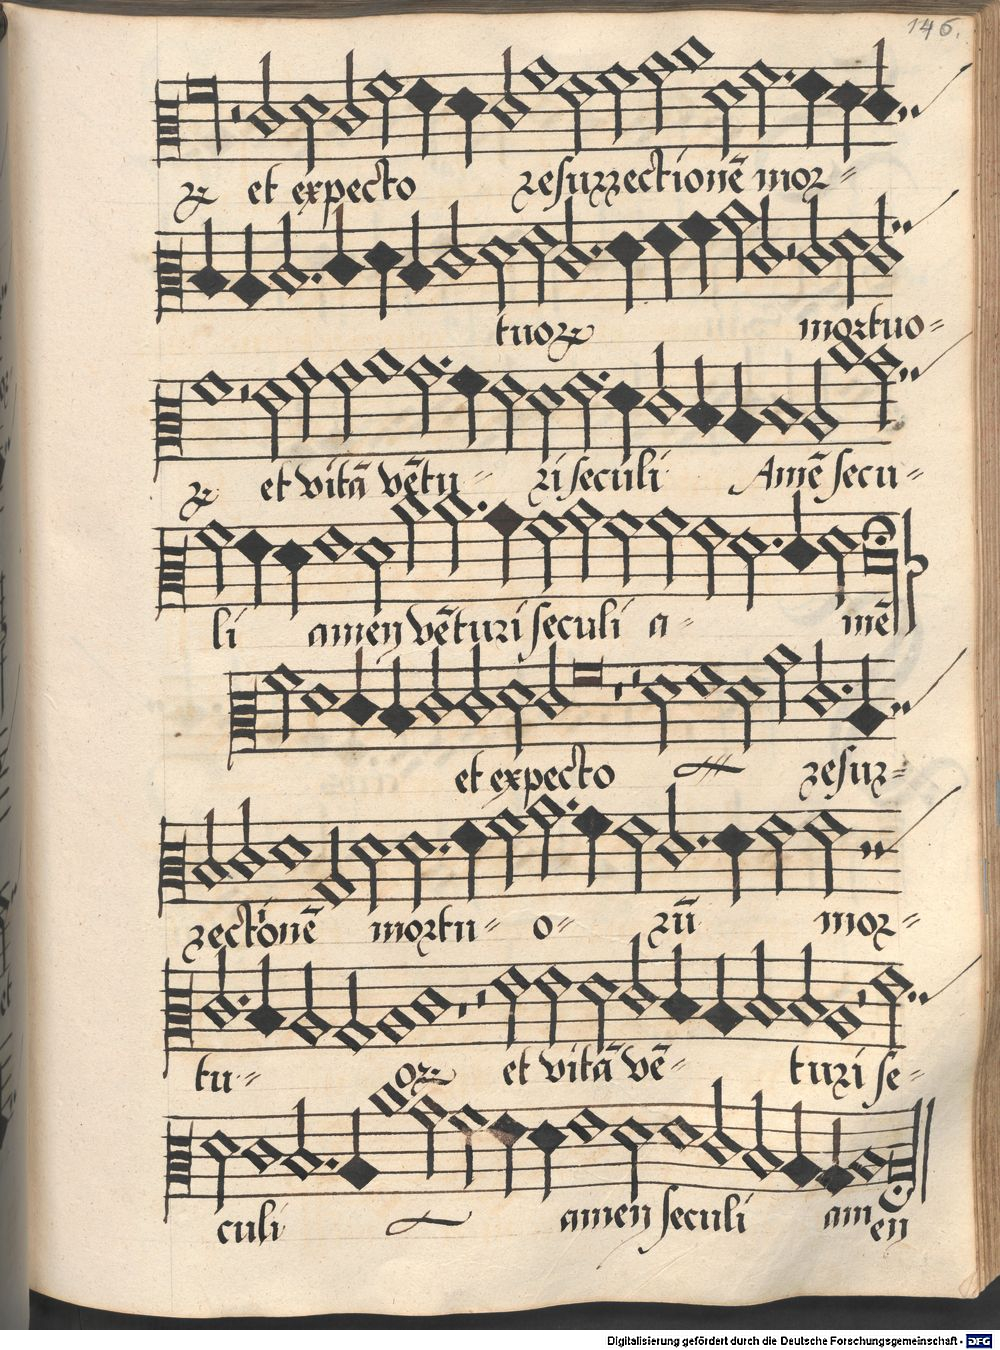 146.
rꝝ et expecto resurrectionē mor=
tuoꝝ mortuo=
ꝝ et vitā vētu= ri seculi Amē secu=
li amen vēturi seculi a= mē
et expecto resur=
rectionē mortu= o= rū mor=
tu= oꝝ et vitā vē= turi se=
culi amen seculi amen
Digitalisierung gefördert durch die Deutsche Forschungsgemeinschaft - DFG